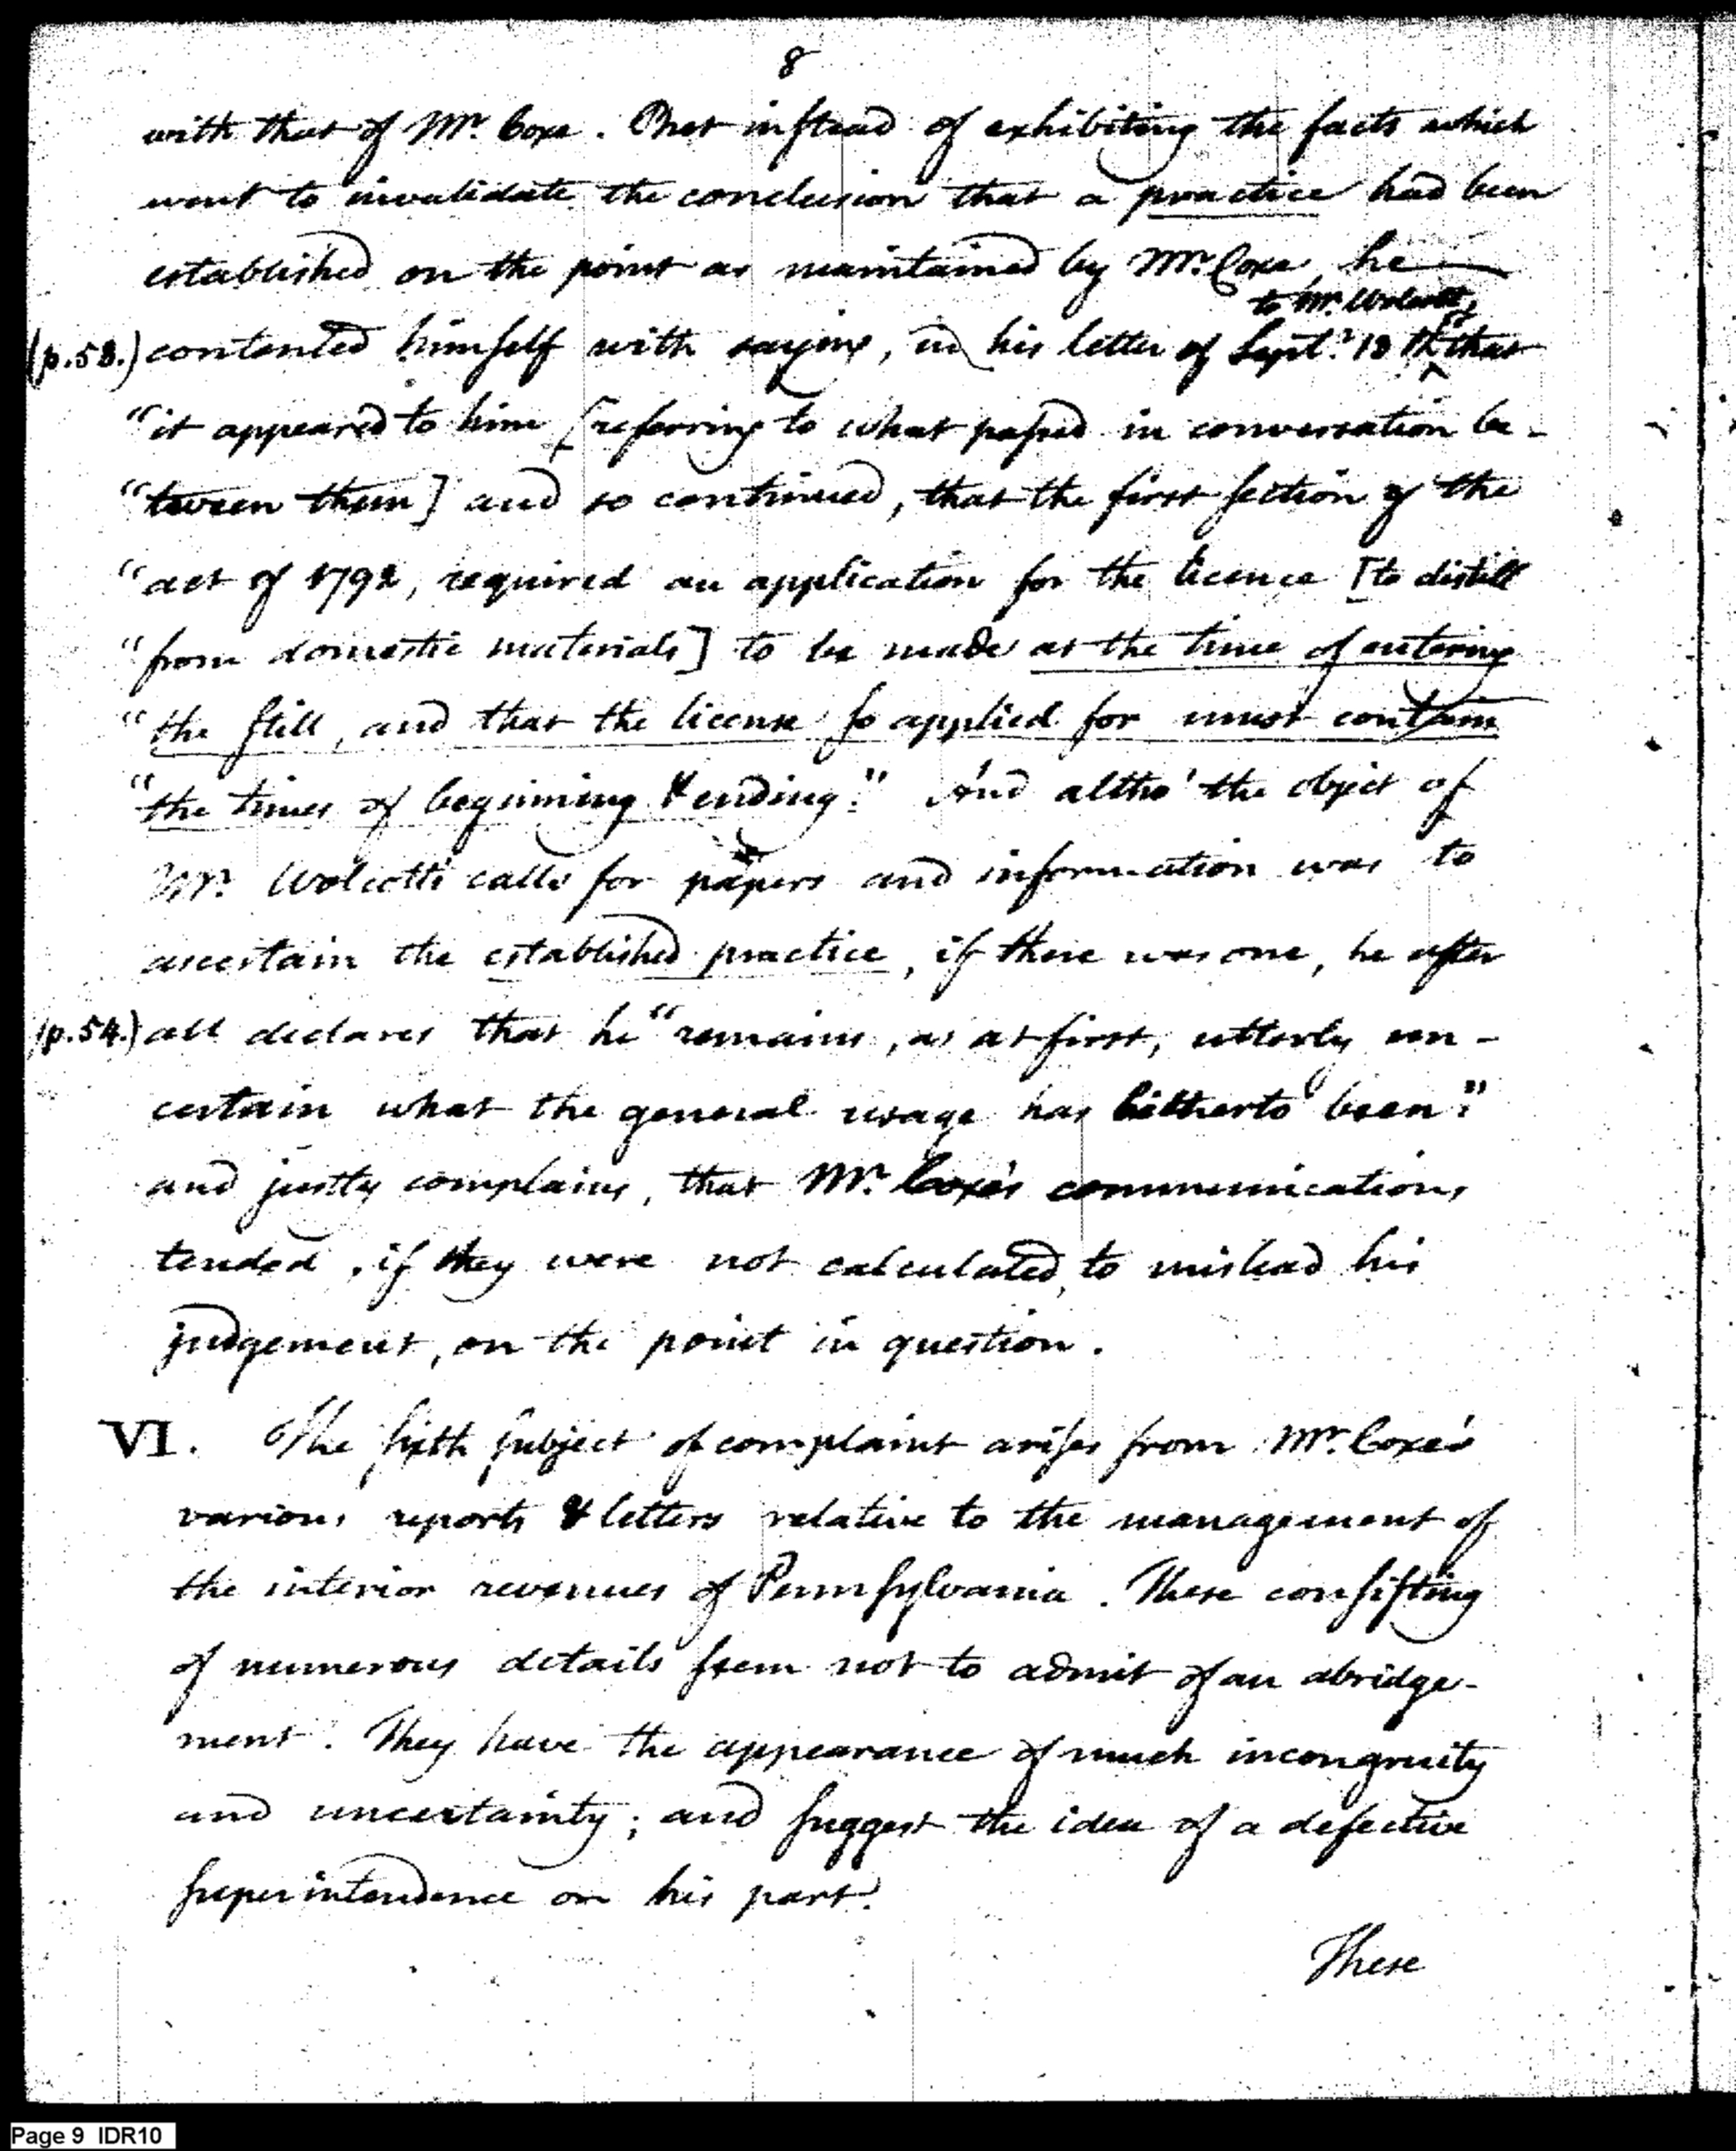 8
with that of Mr. Coxe. But instead of exhibiting the facts which
went to invalidate the conclusion that a practice had been
established on the point as maintained by Mr. Coxe, he
to Mr. Wolcott,
(p.53.) contented himself with saying, in his letter of Sept. 18th that
"it appeared to him [referring to what passed in conversation be-
"tween them] and so continued, that the first section of the
"act of 1792, required an application for the licence [to distill
"from domestic materials] to be made at the time of entering
"the still, and that the license so applied for must contain
"the times of beginning & ending." And altho' the object of
Mr. Wolcott's calls for papers and information was to
ascertain the established practice, if there was one, he after
(p.54.) all declares that he "remains, as at first, utterly un-
certain what the general usage has hitherto been."
and justly complains, that Mr. Coxe's communications
tended, if they were not calculated, to mislead his
judgement, on the point in question.
VI. The sixth subject of complaint arises from Mr. Coxe's
various reports & letters relative to the management of
the interior revenues of Pennsylvania. These consisting
of numerous details seem not to admit of an abridge-
ment. They have the appearance of much incongruity
and uncertainty; and suggest the idea of a defective
superintendence on his part.
These
Page 9 IDR10